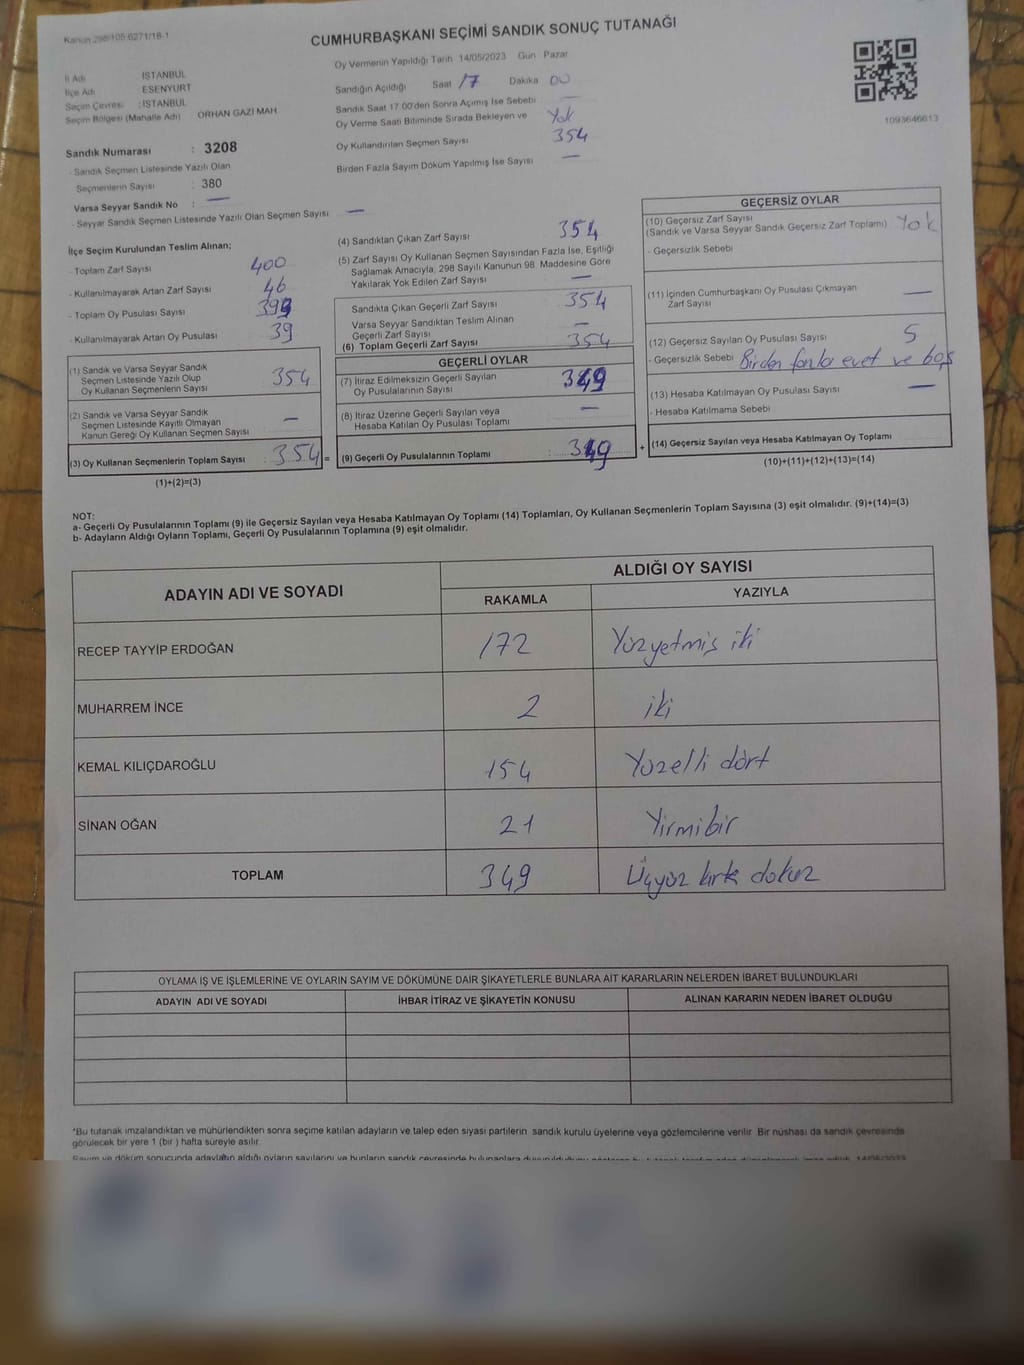 Kanun 298/105 6271/18-1
CUMHURBAŞKANI SEÇİMİ SANDIK SONUÇ TUTANAĞI
İl Adı İSTANBUL
İlçe Adı ESENYURT
Seçim Çevresi : İSTANBUL
Seçim Bölgesi (Mahalle Adı) ORHAN GAZİ MAH
Sandık Numarası : 3208
- Sandık Seçmen Listesinde Yazılı Olan
Seçmenlerin Sayısı : 380
Varsa Seyyar Sandık No : —
- Seyyar Sandık Seçmen Listesinde Yazılı Olan Seçmen Sayısı —
Oy Vermenin Yapıldığı Tarih 14/05/2023 Gün Pazar
Sandığın Açıldığı Saat 17 Dakika 00
Sandık Saat 17:00'den Sonra Açımış İse Sebebi —
Oy Verme Saati Bitiminde Sırada Bekleyen ve Yok
Oy Kullandırılan Seçmen Sayısı 354
Birden Fazla Sayım Döküm Yapılmış İse Sayısı —
1093646613
İlçe Seçim Kurulundan Teslim Alınan;
- Toplam Zarf Sayısı 400
- Kullanılmayarak Artan Zarf Sayısı 46
- Toplam Oy Pusulası Sayısı
- Kullanılmayarak Artan Oy Pusulası 39
(1) Sandık ve Varsa Seyyar Sandık
Seçmen Listesinde Yazılı Olup
Oy Kullanan Seçmenlerin Sayısı 354
(2) Sandık ve Varsa Seyyar Sandık
Seçmen Listesinde Kayıtlı Olmayan
Kanun Gereği Oy Kullanan Seçmen Sayısı —
(3) Oy Kullanan Seçmenlerin Toplam Sayısı : 354 =
(1)+(2)=(3)
(4) Sandıktan Çıkan Zarf Sayısı 354
(5) Zarf Sayısı Oy Kullanan Seçmen Sayısından Fazla İse, Eşitliği
Sağlamak Amacıyla, 298 Sayılı Kanunun 98. Maddesine Göre
Yakılarak Yok Edilen Zarf Sayısı —
Sandıkta Çıkan Geçerli Zarf Sayısı 354
Varsa Seyyar Sandıktan Teslim Alınan
Geçerli Zarf Sayısı —
(6) Toplam Geçerli Zarf Sayısı 354
GEÇERLİ OYLAR
(7) İtiraz Edilmeksizin Geçerli Sayılan
Oy Pusulalarının Sayısı 349
(8) İtiraz Üzerine Geçerli Sayılan veya
Hesaba Katılan Oy Pusulası Toplamı —
(9) Geçerli Oy Pusulalarının Toplamı : 349 +
GEÇERSİZ OYLAR
(10) Geçersiz Zarf Sayısı
(Sandık ve Varsa Seyyar Sandık Geçersiz Zarf Toplamı) Yok
- Geçersizlik Sebebi
(11) İçinden Cumhurbaşkanı Oy Pusulası Çıkmayan
Zarf Sayısı —
(12) Geçersiz Sayılan Oy Pusulası Sayısı 5
- Geçersizlik Sebebi Birden fazla evet ve boş
(13) Hesaba Katılmayan Oy Pusulası Sayısı —
- Hesaba Katılmama Sebebi
(14) Geçersiz Sayılan veya Hesaba Katılmayan Oy Toplamı
(10)+(11)+(12)+(13)=(14)
NOT:
a- Geçerli Oy Pusulalarının Toplamı (9) ile Geçersiz Sayılan veya Hesaba Katılmayan Oy Toplamı (14) Toplamları, Oy Kullanan Seçmenlerin Toplam Sayısına (3) eşit olmalıdır. (9)+(14)=(3)
b- Adayların Aldığı Oyların Toplamı, Geçerli Oy Pusulalarının Toplamına (9) eşit olmalıdır.
ADAYIN ADI VE SOYADI ALDIĞI OY SAYISI
RAKAMLA YAZIYLA
RECEP TAYYİP ERDOĞAN 172 Yüzyetmiş iki
MUHARREM İNCE 2 iki
KEMAL KILIÇDAROĞLU 154 Yüzelli dört
SİNAN OĞAN 21 Yirmibir
TOPLAM 349 Üçyüz kırk dokuz
OYLAMA İŞ VE İŞLEMLERİNE VE OYLARIN SAYIM VE DÖKÜMÜNE DAİR ŞİKAYETLERLE BUNLARA AİT KARARLARIN NELERDEN İBARET BULUNDUKLARI
ADAYIN ADI VE SOYADI İHBAR İTİRAZ VE ŞİKAYETİN KONUSU ALINAN KARARIN NEDEN İBARET OLDUĞU
*Bu tutanak imzalandıktan ve mühürlendikten sonra seçime katılan adayların ve talep eden siyasi partilerin sandık kurulu üyelerine veya gözlemcilerine verilir Bir nüshası da sandık çevresinde
görülecek bir yere 1 (bir ) hafta süreyle asılır.
Sayım ve döküm sonucunda adayların aldığı oyların sayılarını ve bunların sandık çevresinde